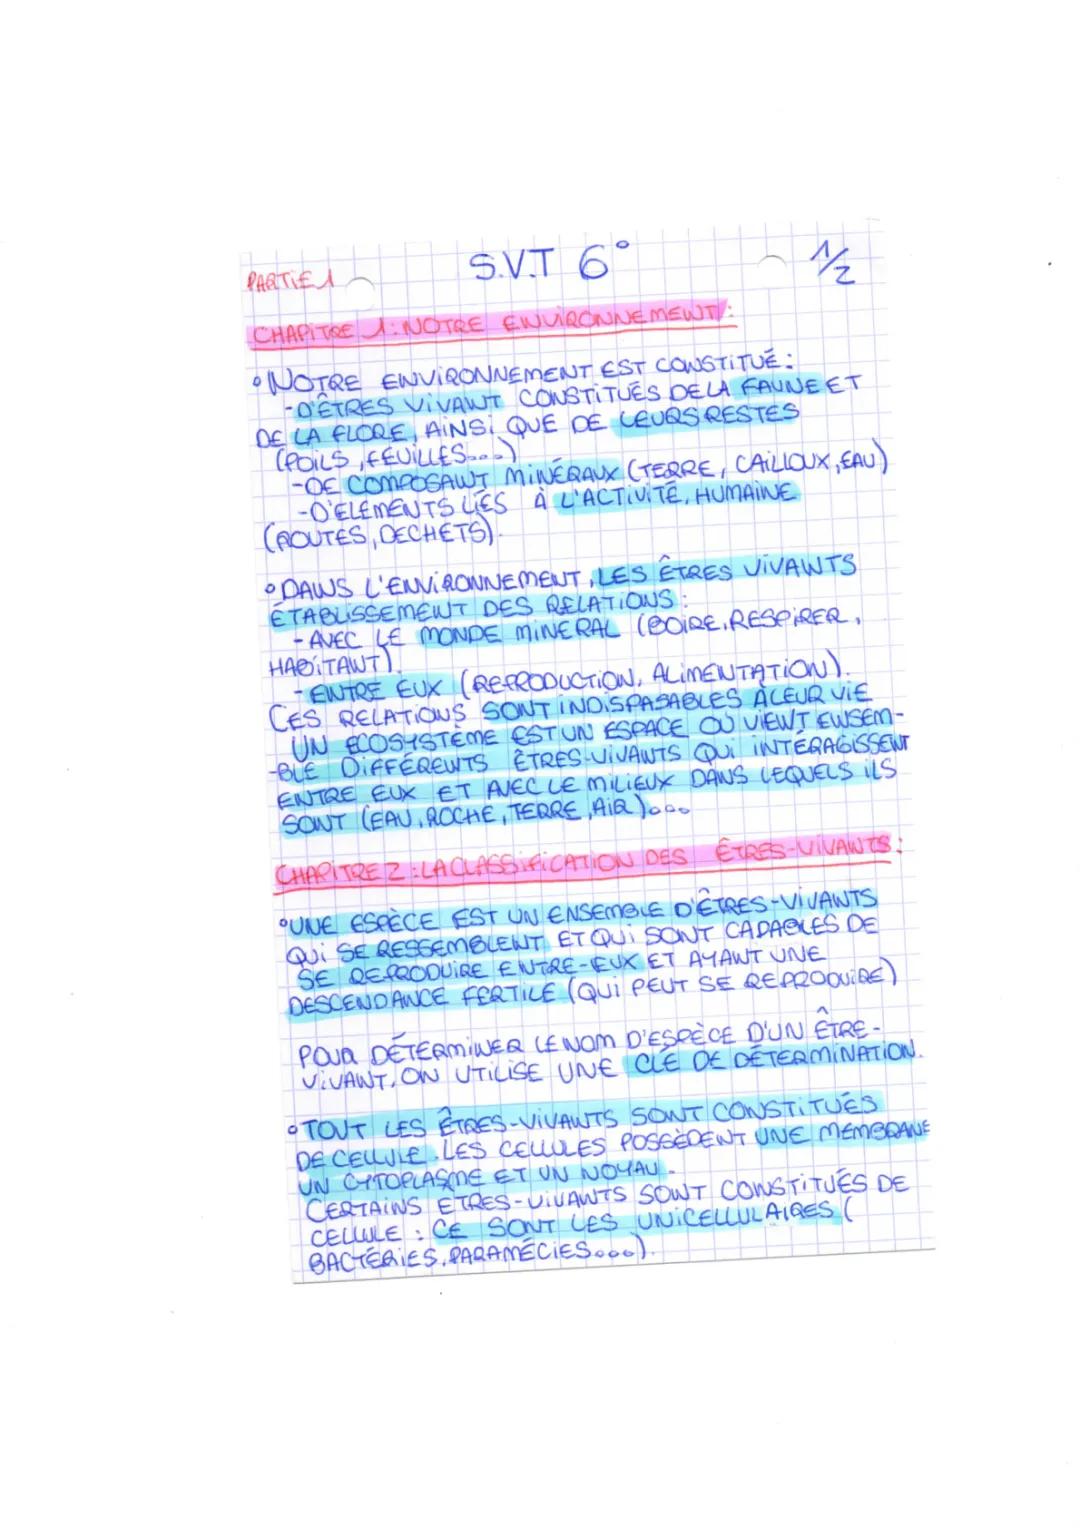 S.V.T 6°
1/2
PARTIE 1
CHAPITRE 1 : NOTRE ENVIRONNEMENT :
• NOTRE ENVIRONNEMENT EST CONSTITUÉ :
- D'ÊTRES VIVANT CONSTITUÉS DE LA FAUNE ET
DE LA FLORE, AINSI QUE DE LEURS RESTES
(POILS, FEUILLES...)
- DE COMPOSANT MINÉRAUX (TERRE, CAILLOUX, EAU)
- D'ELÉMENTS LIÉS À L'ACTIVITÉ, HUMAINE
(ROUTES, DECHETS).
• DANS L'ENVIRONNEMENT, LES ÊTRES VIVANTS
ÉTABLISSEMENT DES RELATIONS :
- AVEC LE MONDE MINERAL (BOIRE, RESPIRER,
HABITANT).
- ENTRE EUX (REPRODUCTION, ALIMENTATION).
CES RELATIONS SONT INDISPASABLES À LEUR VIE
UN ECOSYSTÈME EST UN ESPACE OÙ VIENT ENSEM-
-BLE DIFFÉRENTS ÊTRES-VIVANTS QUI INTÉRAGISSENT
ENTRE EUX ET AVEC LE MILIEUX DANS LEQUELS ILS
SONT (EAU, ROCHE, TERRE, AIR)...
CHAPITRE 2 : LA CLASSIFICATION DES ÊTRES-VIVANTS :
• UNE ESPÈCE EST UN ENSEMBLE D'ÊTRES-VIVANTS
QUI SE RESSEMBLENT ET QUI SONT CAPABLES DE
SE REPRODUIRE ENTRE-EUX ET AYANT UNE
DESCENDANCE FERTILE (QUI PEUT SE REPRODUIRE)
POUR DÉTERMINER LE NOM D'ESPÈCE D'UN ÊTRE-
VIVANT, ON UTILISE UNE CLÉ DE DÉTERMINATION.
• TOUT LES ÊTRES-VIVANTS SONT CONSTITUÉS
DE CELLULE. LES CELLULES POSSÈDENT UNE MEMBRANE
UN CYTOPLASME ET UN NOYAU.
CERTAINS ETRES-VIVANTS SONT CONSTITUÉS DE
CELLULE : CE SONT LES UNICELLULAIRES (
BACTÉRIES, PARAMÉCIES...).